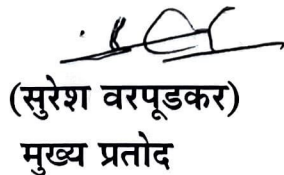 (सुरेश वरपूडकर)
मुख्य प्रतोद